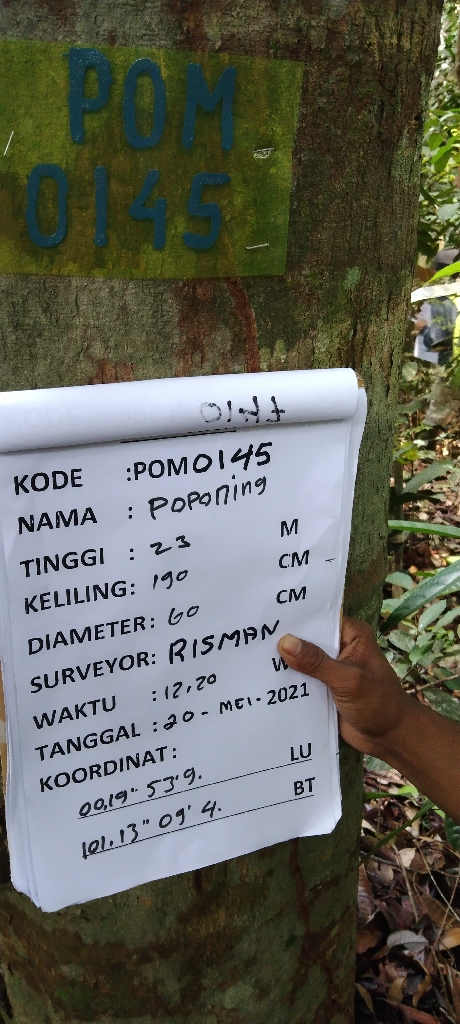 POM
0145
KODE :POM0145
NAMA : POPOMing
TINGGI : 23 M
KELILING: 190 CM
DIAMETER: 60 CM
SURVEYOR: RISMAN
WAKTU : 12,20 W
TANGGAL : 20 - MEI - 2021
KOORDINAT:
00.19" 53'9. LU
101.13" 09' 4. BT